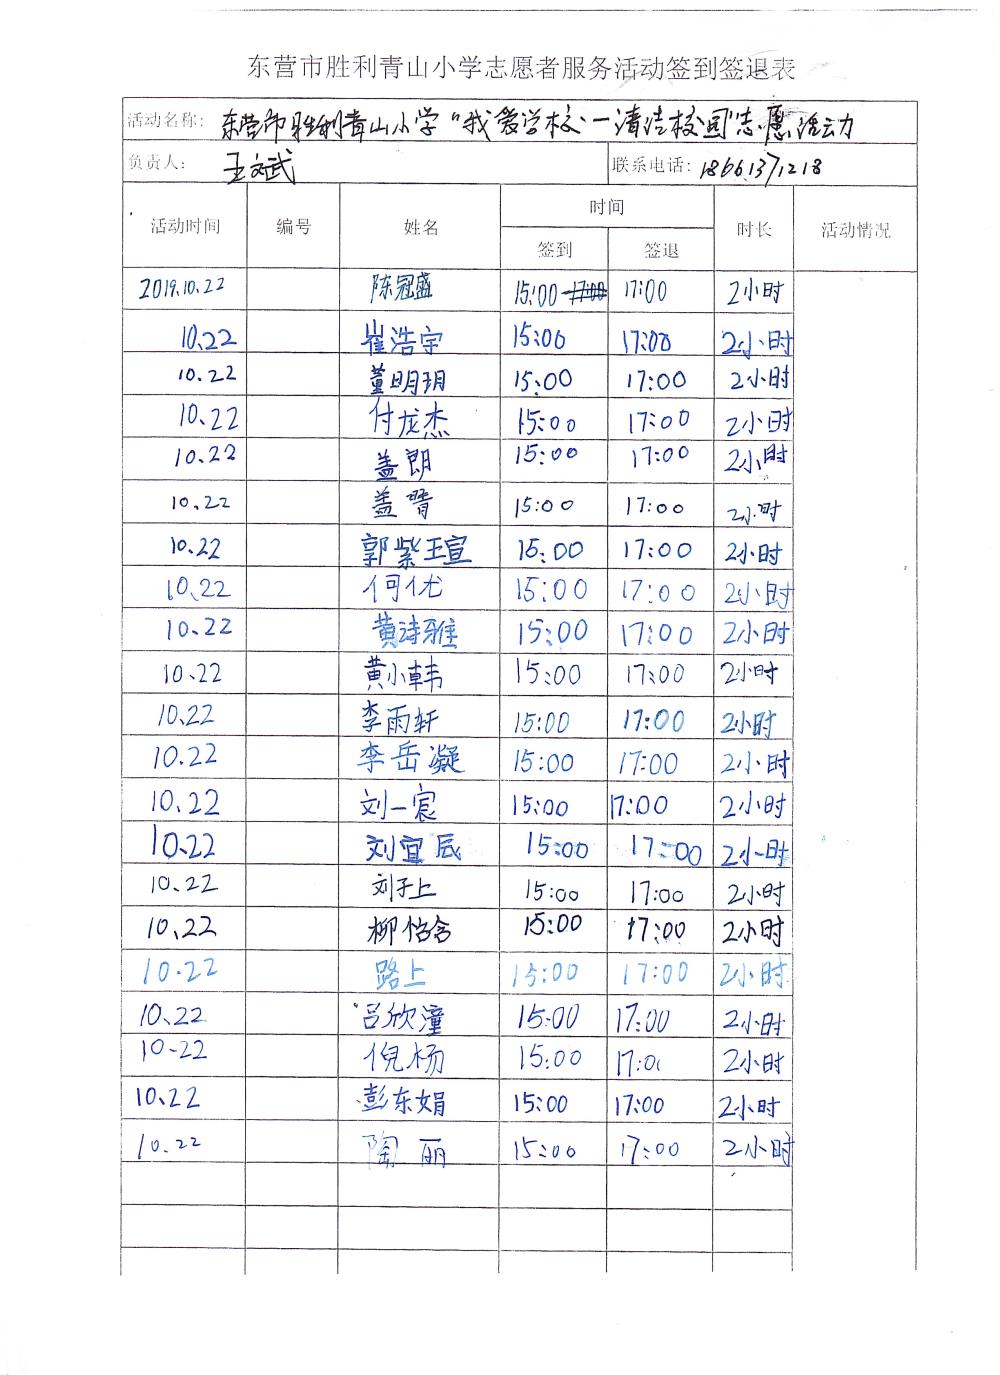 东营市胜利青山小学志愿者服务活动签到签退表
活动名称: 东营市胜利青山小学“我爱学校—清洁校园”志愿活动
负责人: 王文斌 联系电话: 18661371218
活动时间 编号 姓名 时间 时长 活动情况
签到 签退
2019.10.22 陈冠盛 15:00 17:00 17:00 2小时
10.22 崔浩宇 15:00 17:00 2小时
10.22 董明玥 15:00 17:00 2小时
10.22 付龙杰 15:00 17:00 2小时
10.22 盖朗 15:00 17:00 2小时
10.22 盖 15:00 17:00 2小时
10.22 郭紫瑄 15:00 17:00 2小时
10.22 何优 15:00 17:00 2小时
10.22 黄诗雅 15:00 17:00 2小时
10.22 黄小韩 15:00 17:00 2小时
10.22 李雨轩 15:00 17:00 2小时
10.22 李岳凝 15:00 17:00 2小时
10.22 刘一宸 15:00 17:00 2小时
10.22 刘宜辰 15:00 17:00 2小时
10.22 刘子上 15:00 17:00 2小时
10.22 柳怡含 15:00 17:00 2小时
10.22 路上 15:00 17:00 2小时
10.22 吕欣潼 15:00 17:00 2小时
10.22 倪杨 15:00 17:00 2小时
10.22 彭东娟 15:00 17:00 2小时
10.22 陶丽 15:00 17:00 2小时